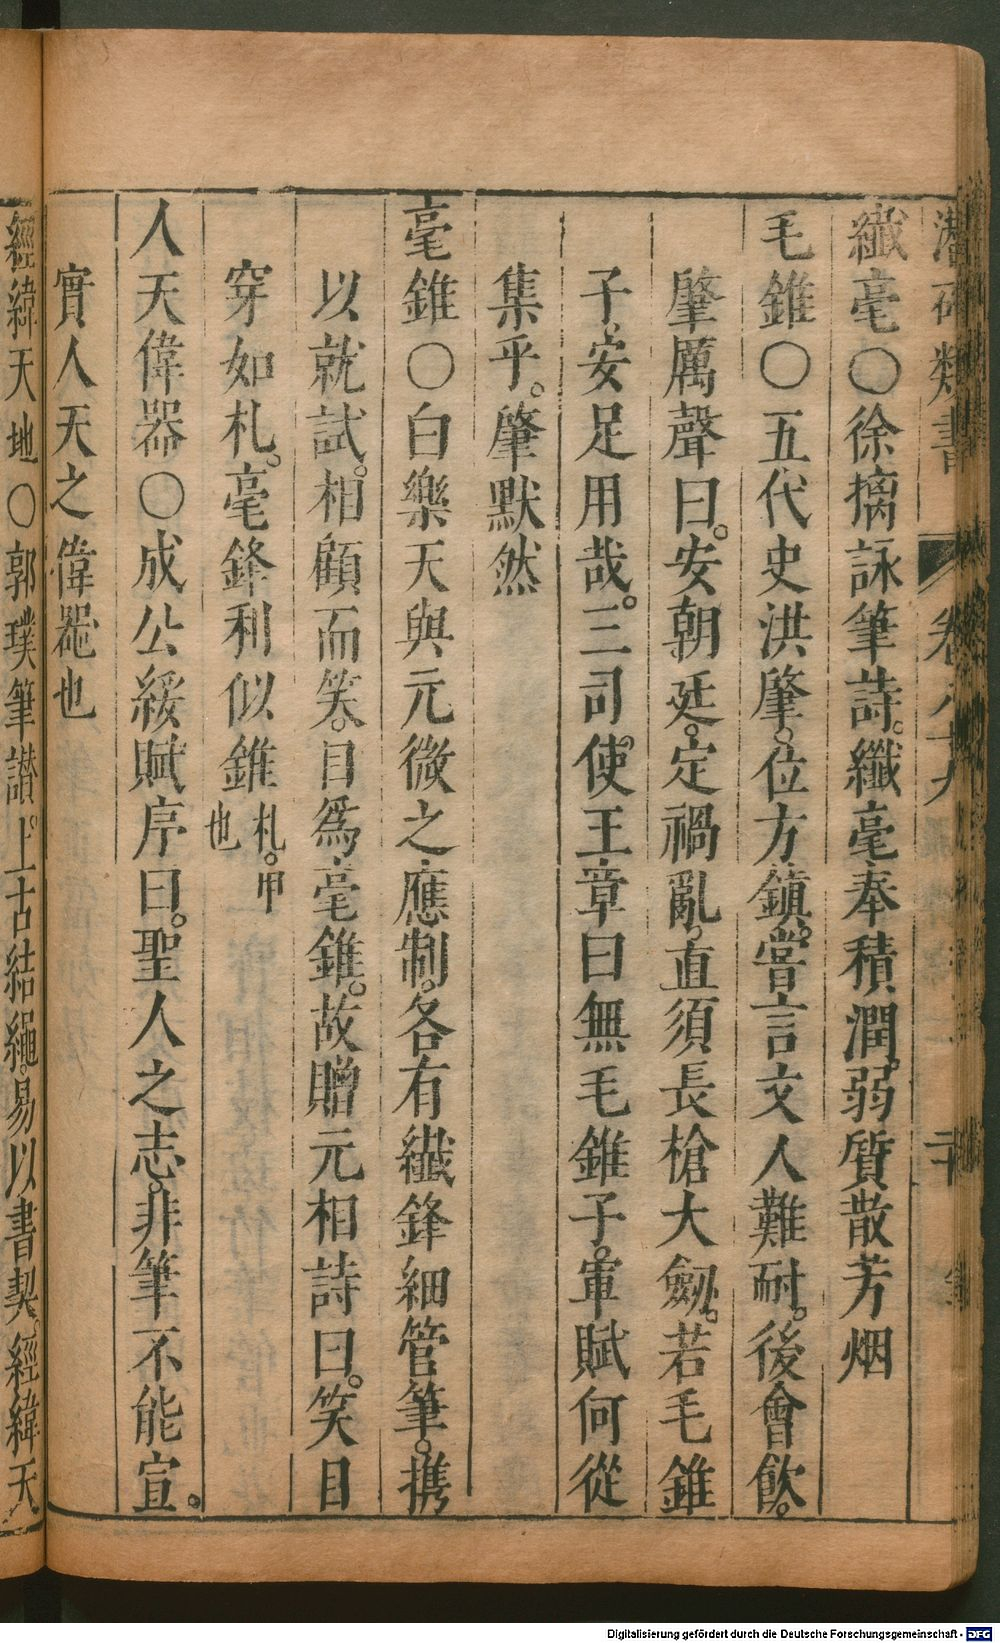 潛確類書 卷八十九 二十
纖毫〇徐摛詠筆詩。纖毫奉積潤。弱質散芳烟
毛錐〇五代史洪肇。位方鎮。嘗言文人難耐。後會飲。
肇厲聲曰。安朝廷。定禍亂。直須長槍大劒。若毛錐
子、安足用哉。三司使。王章曰無毛錐子。軍賦何從
集乎。肇默然
毫錐〇白樂天與元微之應制。各有纖鋒細管筆。携
以就試。相顧而笑。目爲毫錐。故贈元相詩曰。笑目
穿如札。毫鋒利似錐 札。甲也
人天偉器〇成公綏賦序曰。聖人之志。非筆不能宣。
實人天之偉噐也
經緯天地〇郭璞筆讃。上古結繩。易以書契。經緯天
Digitalisierung gefördert durch die Deutsche Forschungsgemeinschaft - DFG